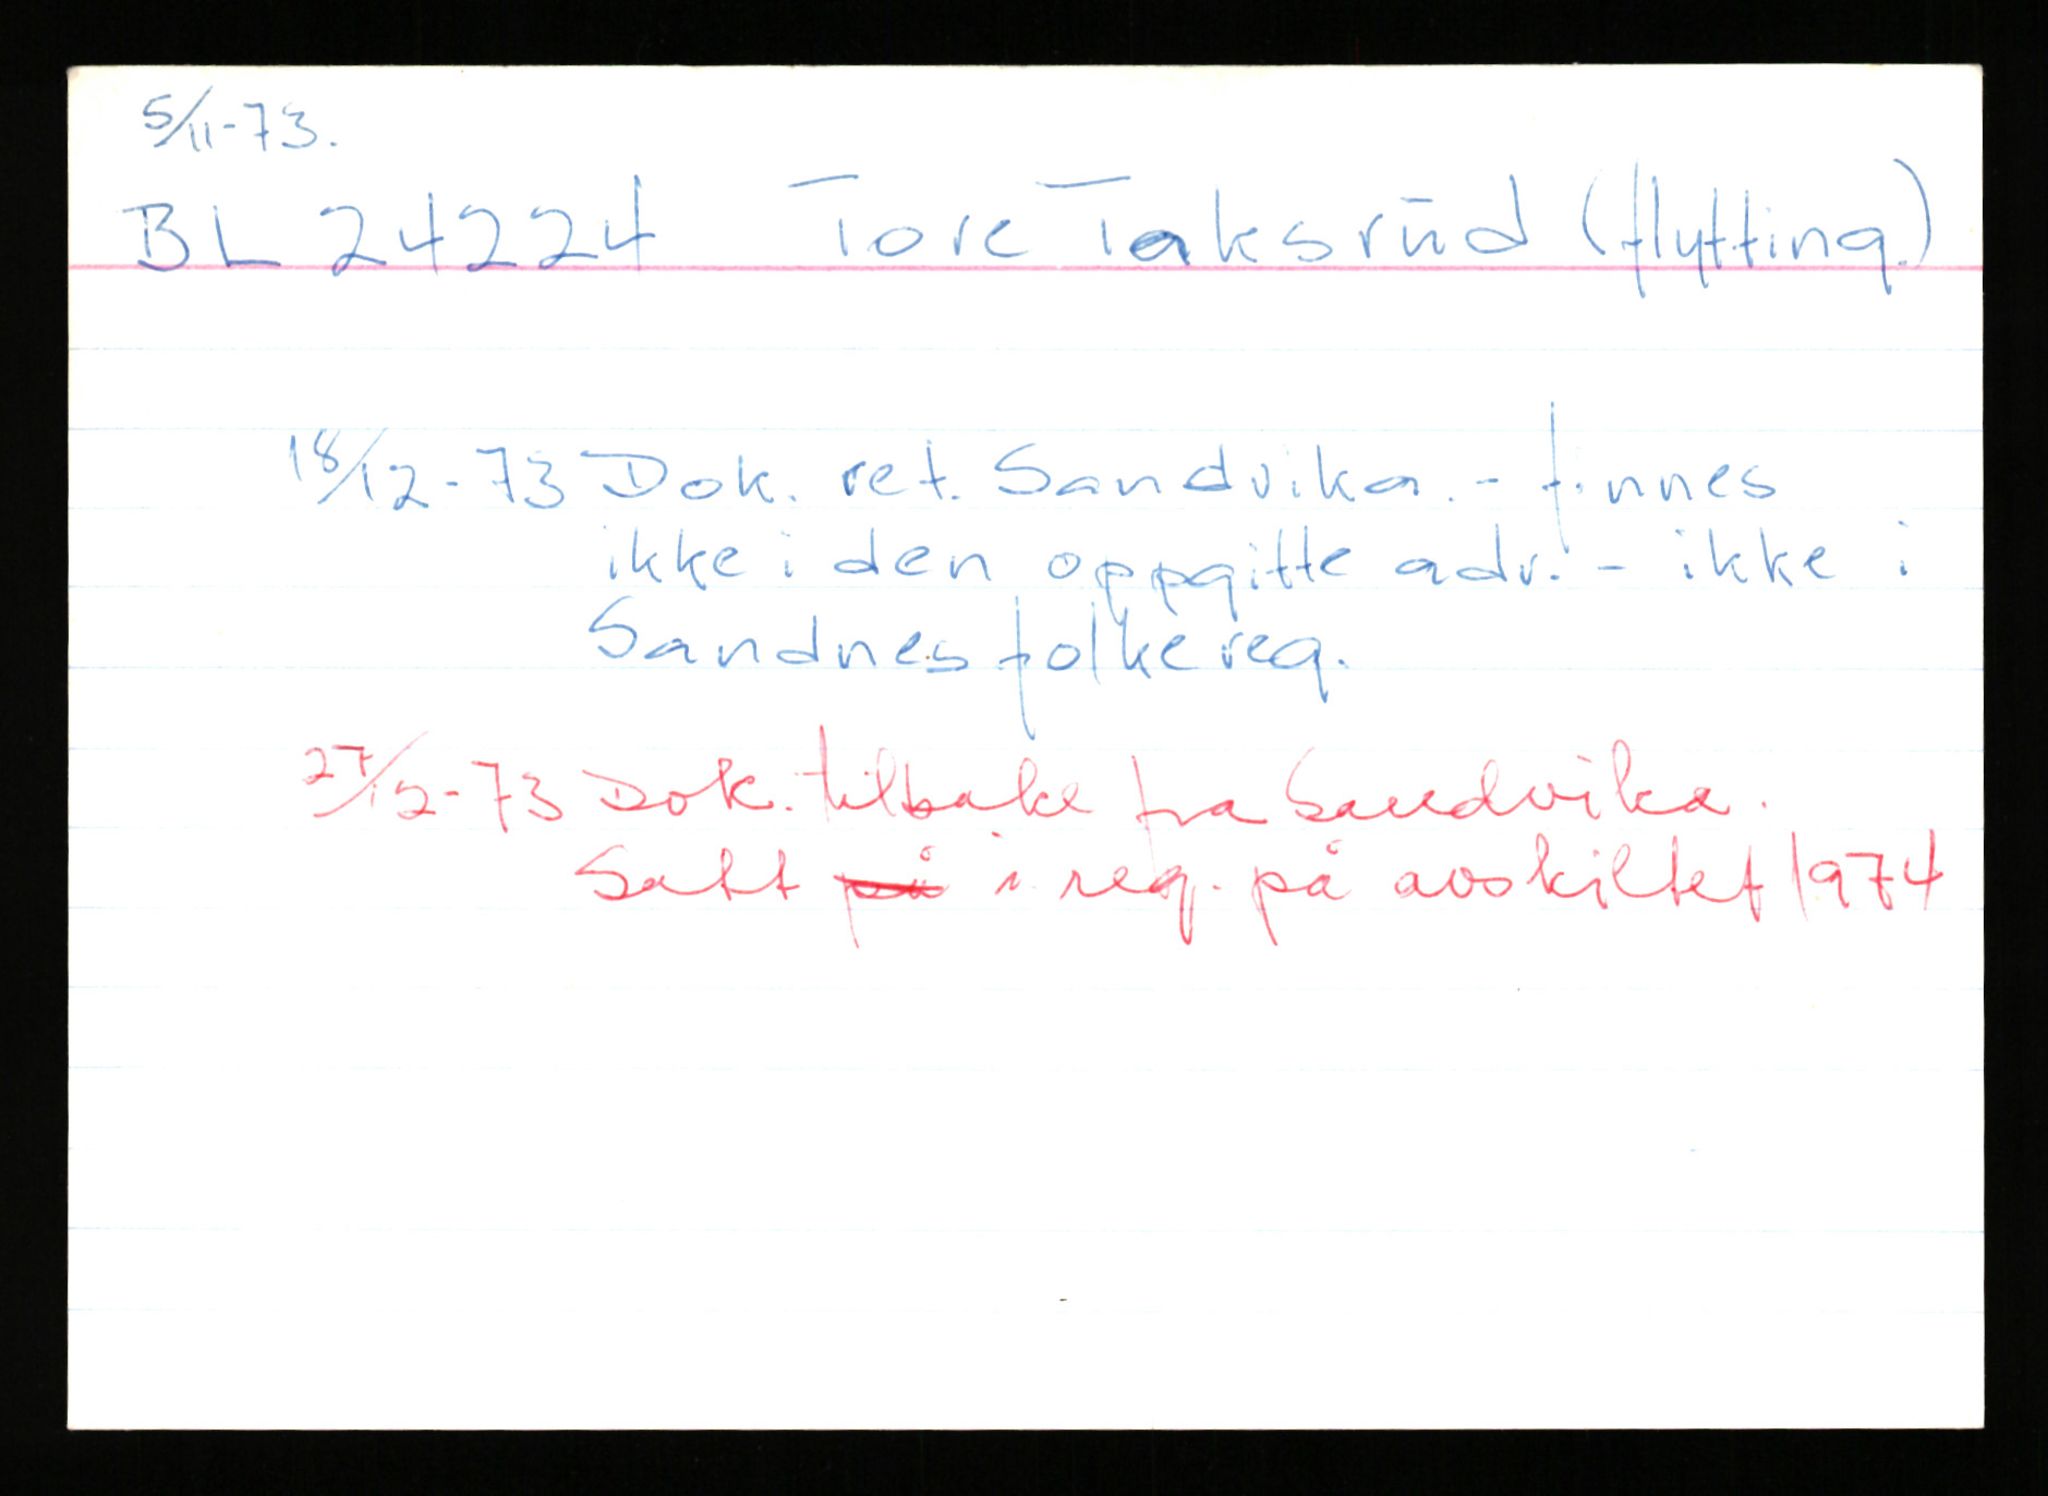 5/11-73.
BL 24224 Tore Taksrud (flytting.)
18/12-73 Dok. ret. Sandvika. - finnes
ikke i den oppgitte adr. - ikke i
Sandnes folkereg.
27/12-73 Dok. tilbake fra Sandvika.
Satt på i reg. på avskiltet 1974